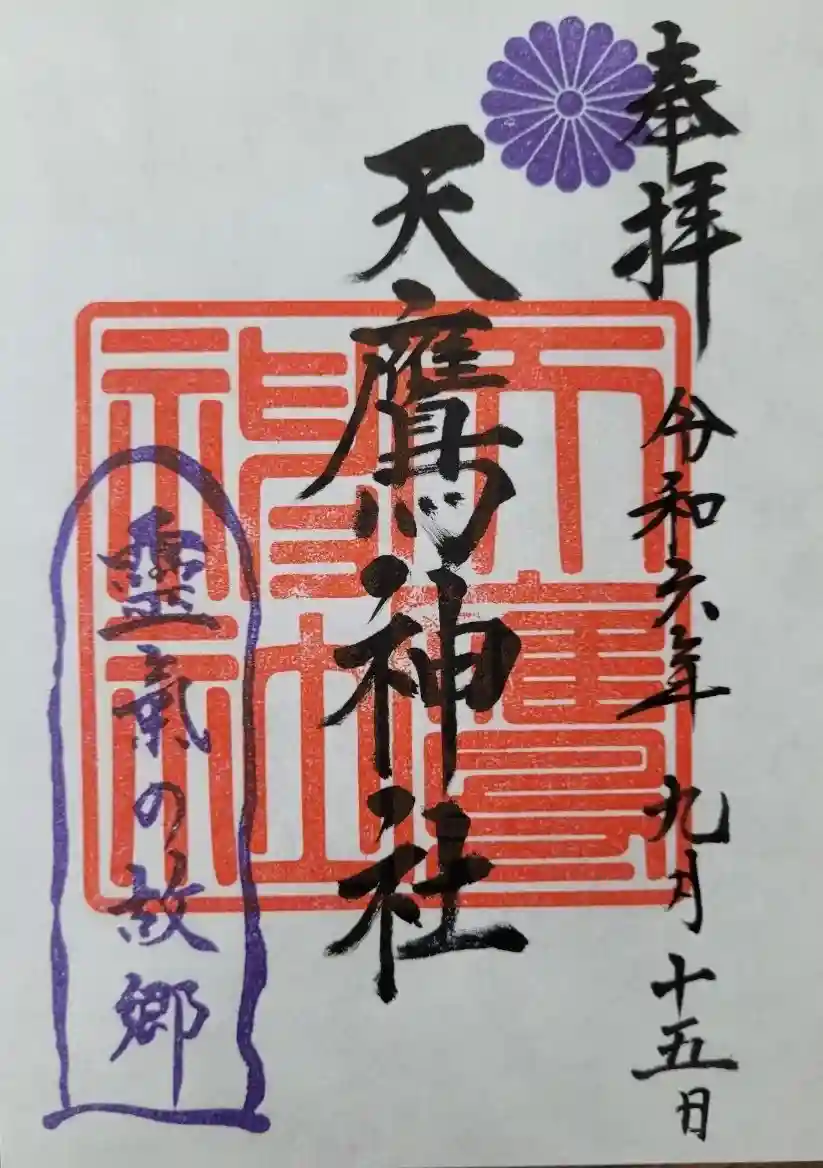 奉拝
令和六年 九月 十五日
天鷹神社
天鷹神社
靈氣の故郷